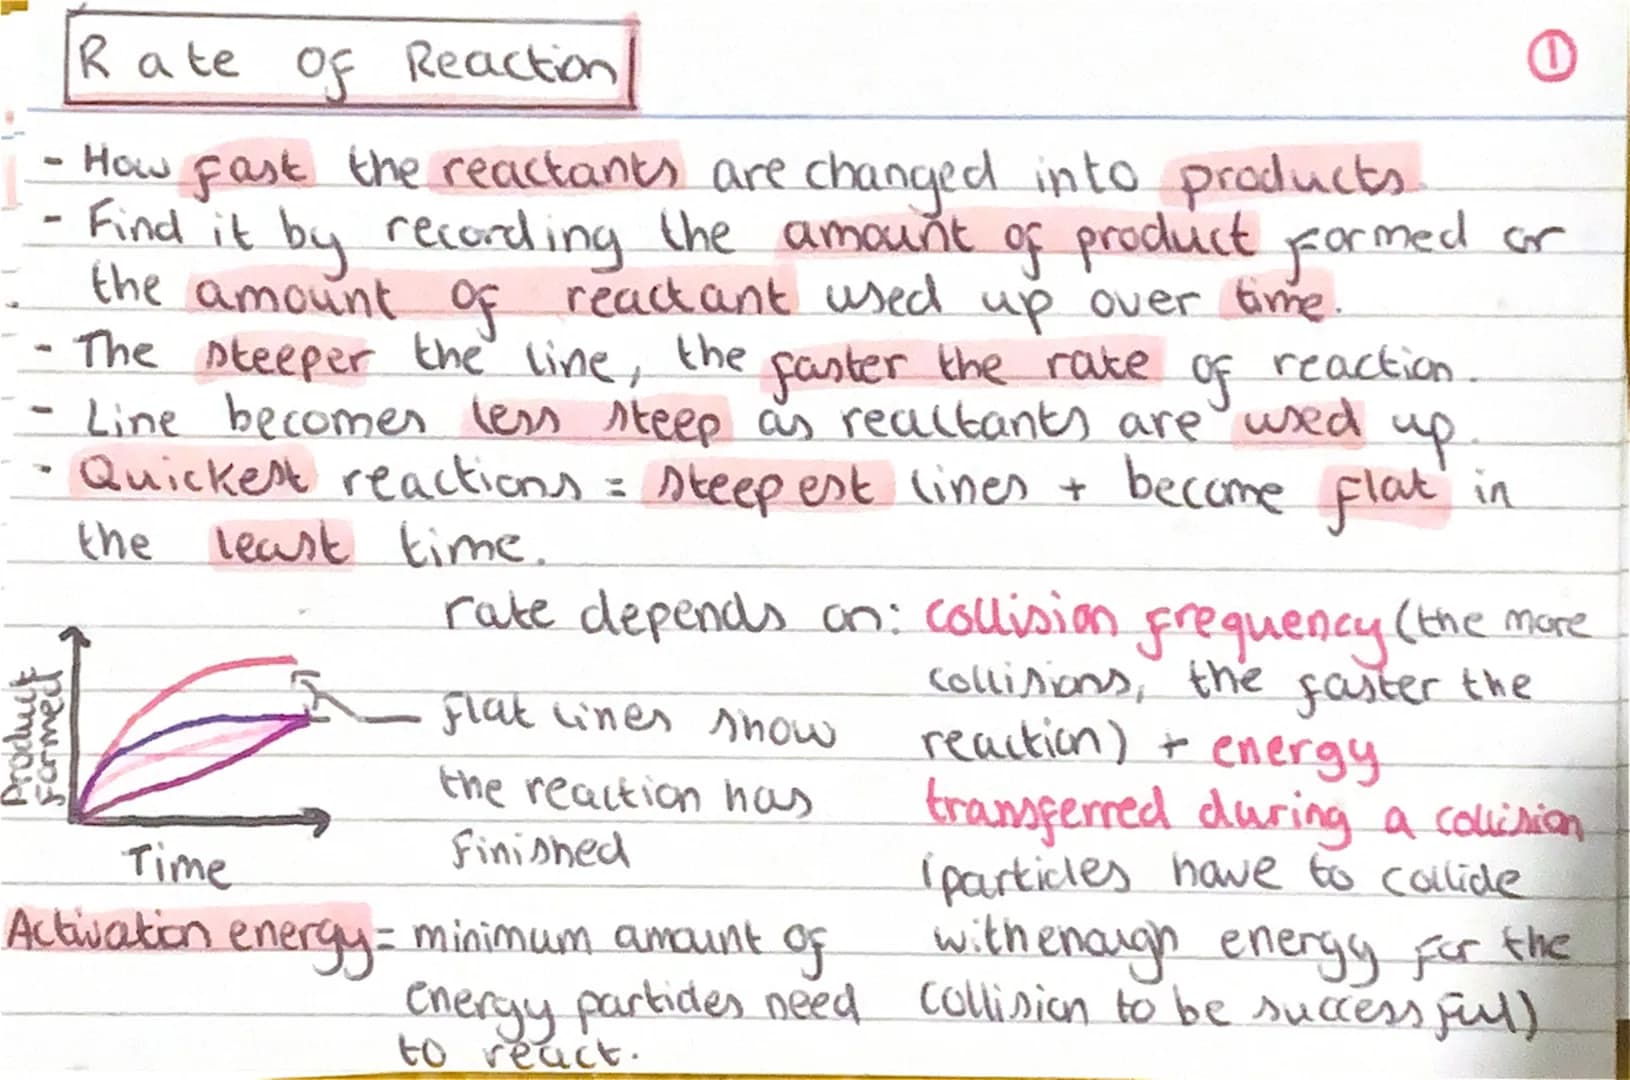 Rate of Reaction
1
- How fast the reactants are changed into products.
- Find it by recording the amount of product formed or
the amount of reactant used up over time.
- The steeper the line, the faster the rate of reaction.
- Line becomes less steep as reactants are used up.
- Quickest reactions = steepest lines + become flat in
the least time.
Product
formed
Time
flat lines show
the reaction has
finished
rate depends on: collision frequency (the more
collisions, the faster the
reaction) + energy
transferred during a collision
(particles have to collide
with enough energy for the
collision to be successful)
Activation energy = minimum amount of
energy particles need
to react.